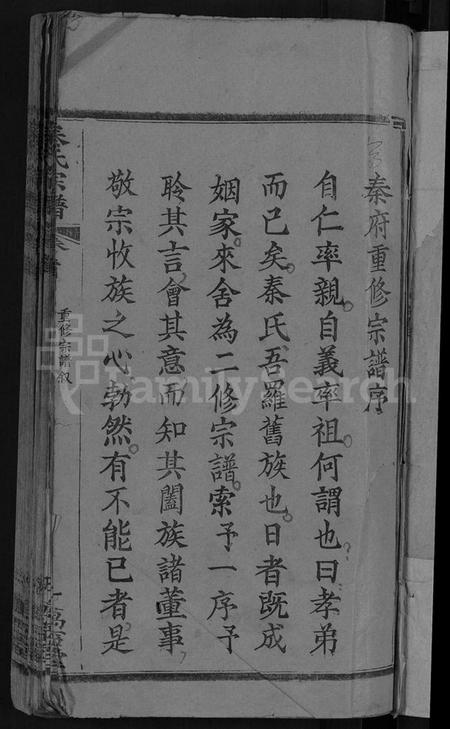 秦府重修宗譜序
自仁率親。自義率祖。何謂也。曰孝弟
而已矣。秦氏吾羅舊族也。日者既成
姻家。來舍為二修宗譜。索予一序。予
聆其言。會其意。而知其闔族諸董事
敬宗收族之心勃然。有不能已者。是
秦氏宗譜
卷首
重修宗譜叙
FamilySearch